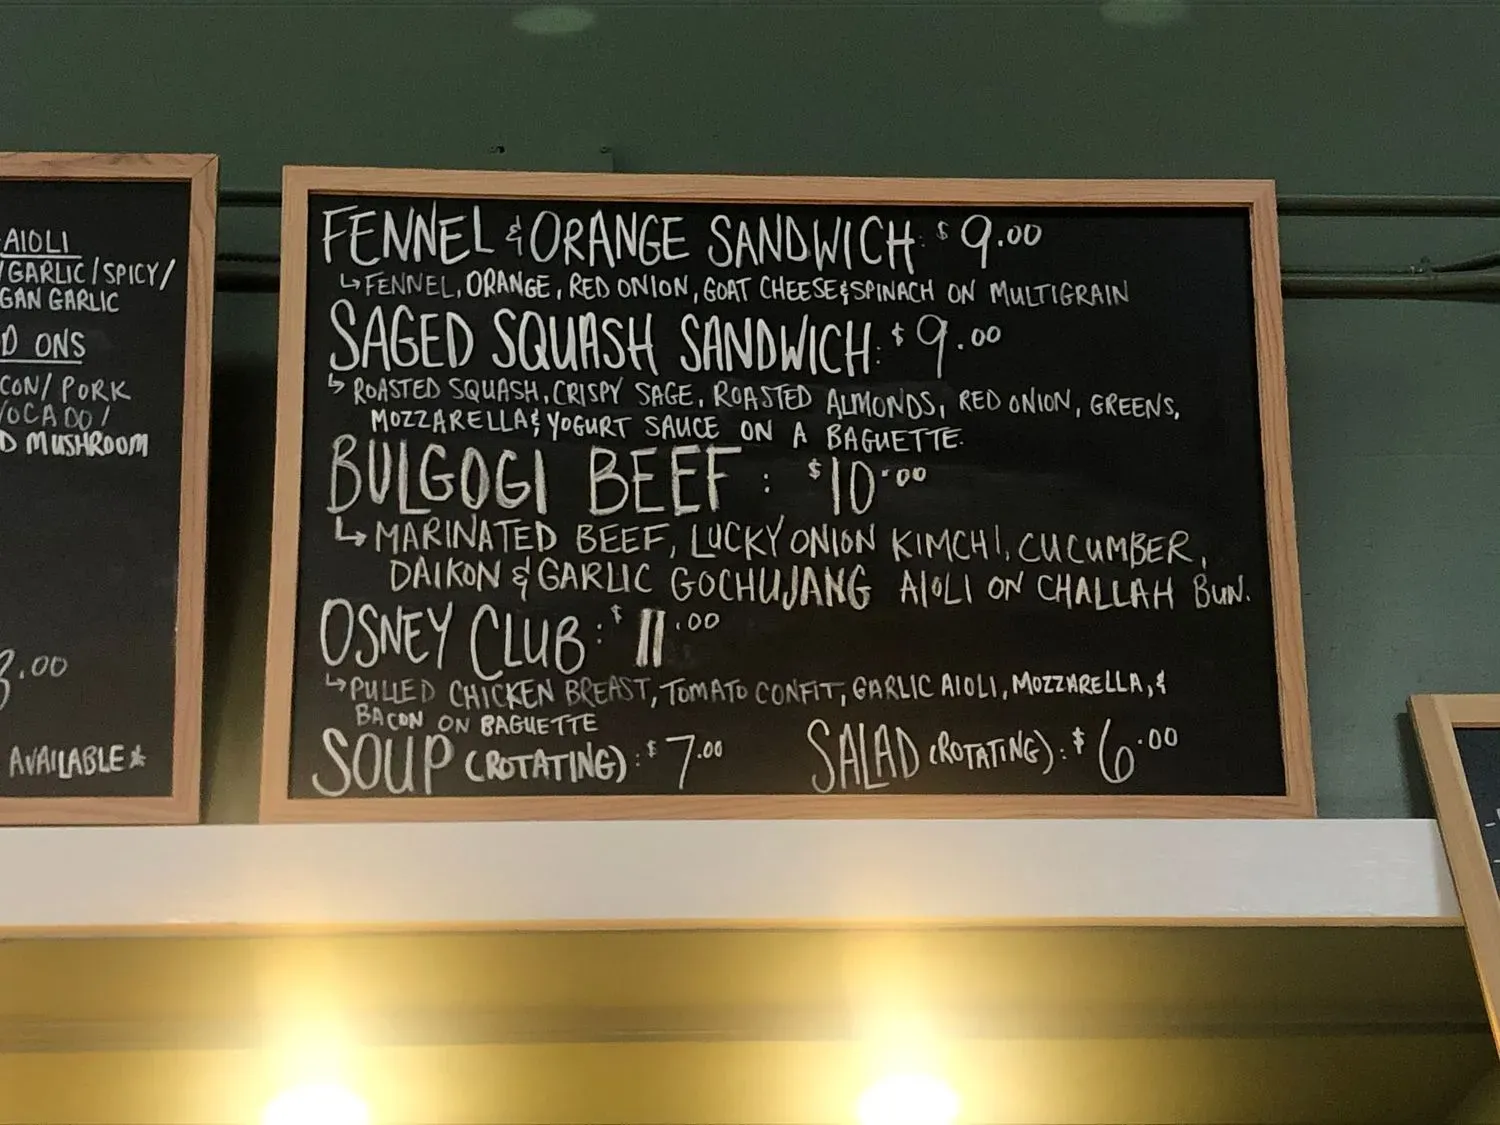 AIOLI
/GARLIC/SPICY/
GAN GARLIC
D ONS
CON/ PORK
OCADO/
D MUSHROOM
3.00
AVAILABLE*
FENNEL & ORANGE SANDWICH: $9.00
↳FENNEL, ORANGE, RED ONION, GOAT CHEESE & SPINACH ON MULTIGRAIN
SAGED SQUASH SANDWICH: $9.00
↳ROASTED SQUASH, CRISPY SAGE, ROASTED ALMONDS, RED ONION, GREENS,
MOZZARELLA & YOGURT SAUCE ON A BAGUETTE.
BULGOGI BEEF: $10.00
↳MARINATED BEEF, LUCKY ONION KIMCHI, CUCUMBER,
DAIKON & GARLIC GOCHUJANG AIOLI ON CHALLAH BUN.
OSNEY CLUB: $11.00
↳PULLED CHICKEN BREAST, TOMATO CONFIT, GARLIC AIOLI, MOZZARELLA, &
BACON ON BAGUETTE
SOUP (ROTATING): $7.00 SALAD (ROTATING): $6.00